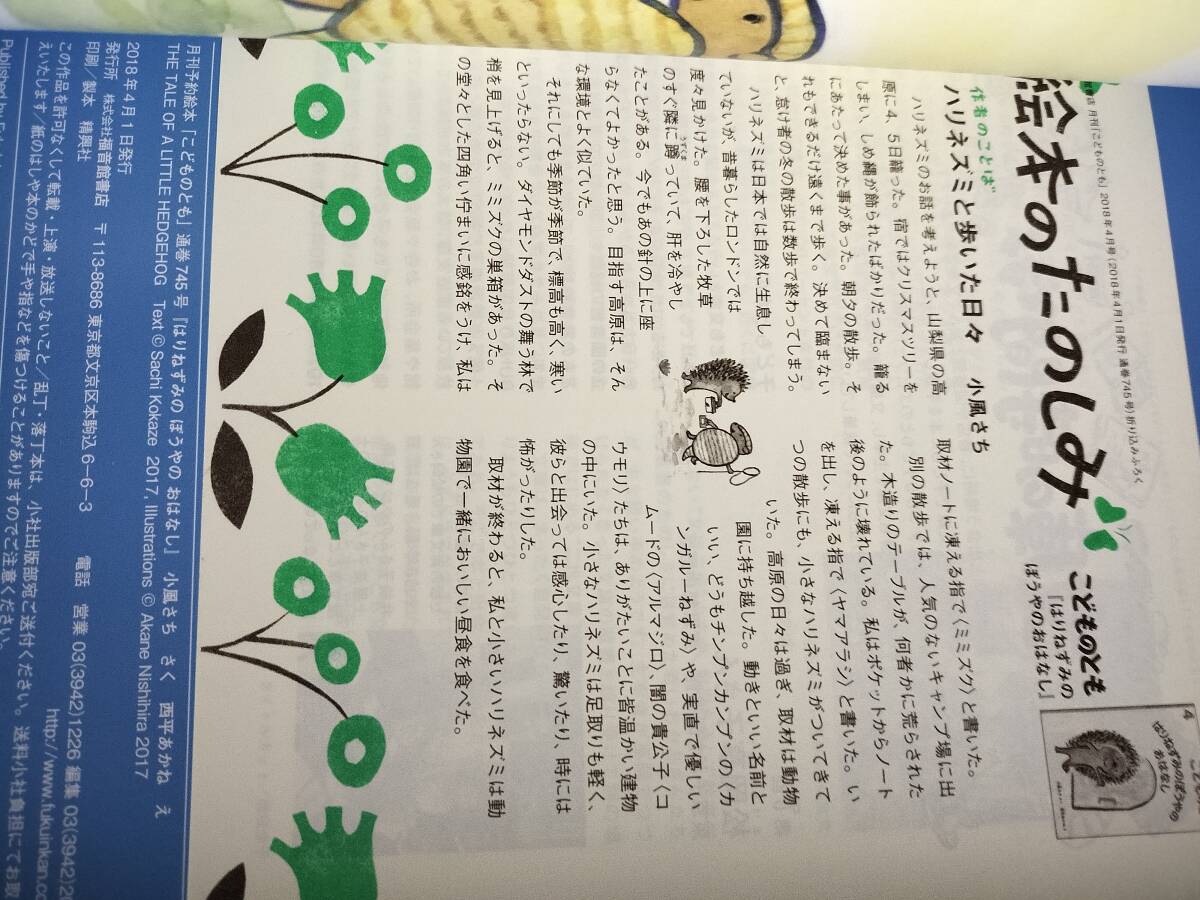 福音館書店 月刊「こどものとも」2018年4月号(2018年4月1日発行 通巻745号)折り込みふろく
絵本のたのしみ
こどものとも
『はりねずみの
ぼうやのおはなし』
はりねずみのぼうやの
おはなし
作者のことば
ハリネズミと歩いた日々　小風さち
ハリネズミのお話を考えようと、山梨県の高
原に4、5日籠った。宿ではクリスマスツリーを
しまい、しめ縄が飾られたばかりだった。籠る
にあたって決めた事があった。朝夕の散歩。そ
れもできるだけ遠くまで歩く。決めて臨まない
と、怠け者の冬の散歩は数歩で終わってしまう。
ハリネズミは日本では自然に生息し
ていないが、昔暮らしたロンドンでは
度々見かけた。腰を下ろした牧草
のすぐ隣に蹲っていて、肝を冷やし
うずくま
たことがある。今でもあの針の上に座
らなくてよかったと思う。目指す高原は、そん
な環境とよく似ていた。
それにしても季節が季節で、標高も高く、寒い
といったらない。ダイヤモンドダストの舞う林で
梢を見上げると、ミミズクの巣箱があった。そ
の堂々とした四角い佇まいに感銘をうけ、私は
取材ノートに凍える指で〈ミミズク〉と書いた。
別の散歩では、人気のないキャンプ場に出
た。木造りのテーブルが、何者かに荒らされた
後のように壊れている。私はポケットからノート
を出し、凍える指で〈ヤマアラシ〉と書いた。い
つの散歩にも、小さなハリネズミがついてきて
いた。高原の日々は過ぎ、取材は動物
園に持ち越した。動きといい名前と
いい、どうもチンプンカンプンの〈カ
ンガルーねずみ〉や、実直で優しい
ムードの〈アルマジロ〉、闇の貴公子〈コ
ウモリ〉たちは、ありがたいことに皆温かい建物
の中にいた。小さなハリネズミは足取りも軽く、
彼らと出会っては感心したり、驚いたり、時には
怖がったりした。
取材が終わると、私と小さいハリネズミは動
物園で一緒においしい昼食を食べた。
月刊予約絵本「こどものとも」通巻745号『はりねずみの ぼうやの おはなし』 小風さち さく 西平あかね え
THE TALE OF A LITTLE HEDGEHOG Text © Sachi Kokaze 2017, Illustrations © Akane Nishihira 2017
2018年4月1日発行
発行所 株式会社福音館書店 〒113-8686 東京都文京区本駒込6-6-3 電話 営業 03(3942)1226 編集 03(3942)
印刷／製本 精興社 http://www.fukuinkan.co
この作品を許可なくして転載・上演・放送しないこと／乱丁・落丁本は、小社出版部宛ご送付ください。送料小社負担にてお取
えいたします／紙のはしや本のかどで手や指などを傷つけることがありますのでご注意ください。
Published by